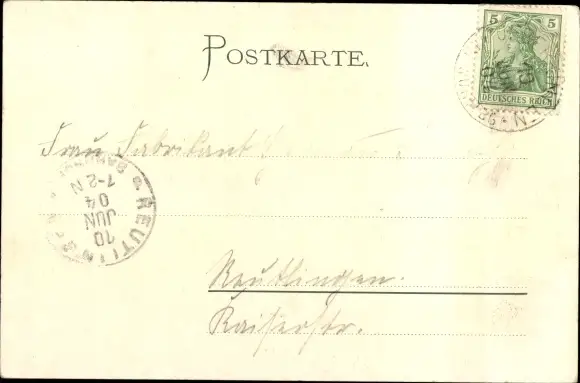 POSTKARTE.
5 5
DEUTSCHES REICH
Frau Fabrikant
REUTLINGEN
10
JUN
04
1-2 N
Reutlingen.
Kaiserstr.